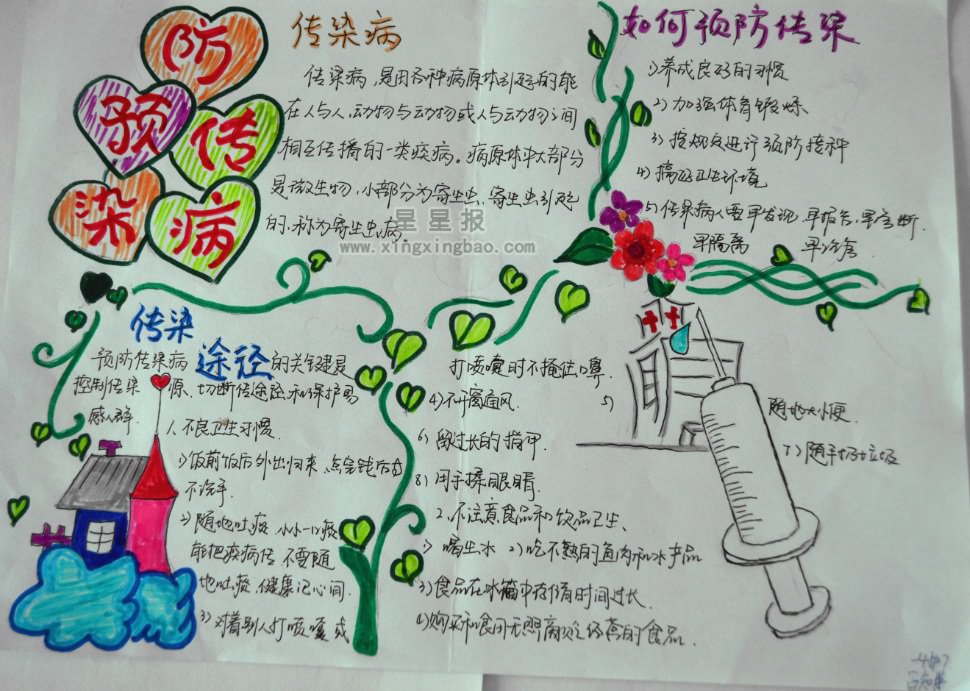 预防
传染病
传染病
传染病,是由各种病原体引起的能
在人与人、动物与动物或人与动物之间
相互传播的一类疾病。病原体中大部分
是微生物,小部分为寄生虫,寄生虫引起
的,称为寄生虫病。
星星报
www.xingxingbao.com
如何预防传染
1)养成良好的习惯
2)加强体育锻炼
3)按规定进行预防接种
4)搞好卫生环境
5)传染病人要早发现,早报告,早诊断.
早隔离 早治疗
传染
途径
预防传染病 的关键是
控制传染 源、切断传途径和保护易
感人群.
1、不良卫生习惯
1)饭前饭后外出归来、点完钱后均
不洗手.
2)随地吐痰 小小一口痰
能把疾病传 不要随
地吐痰.健康记心间.
3)对着别人打喷嚏或
打喷嚏时不掩住口鼻.
4)不开窗通风.
5) 随地大小便
6)留过长的指甲
7)随手扔垃圾
8)用手揉眼睛.
2、不注意食品和饮品卫生、
1)喝生水 2)吃不熟的鱼肉和水产品
3)食品在冰箱中存储有时间过长.
4)购买和食用无照商贩经营的食品.